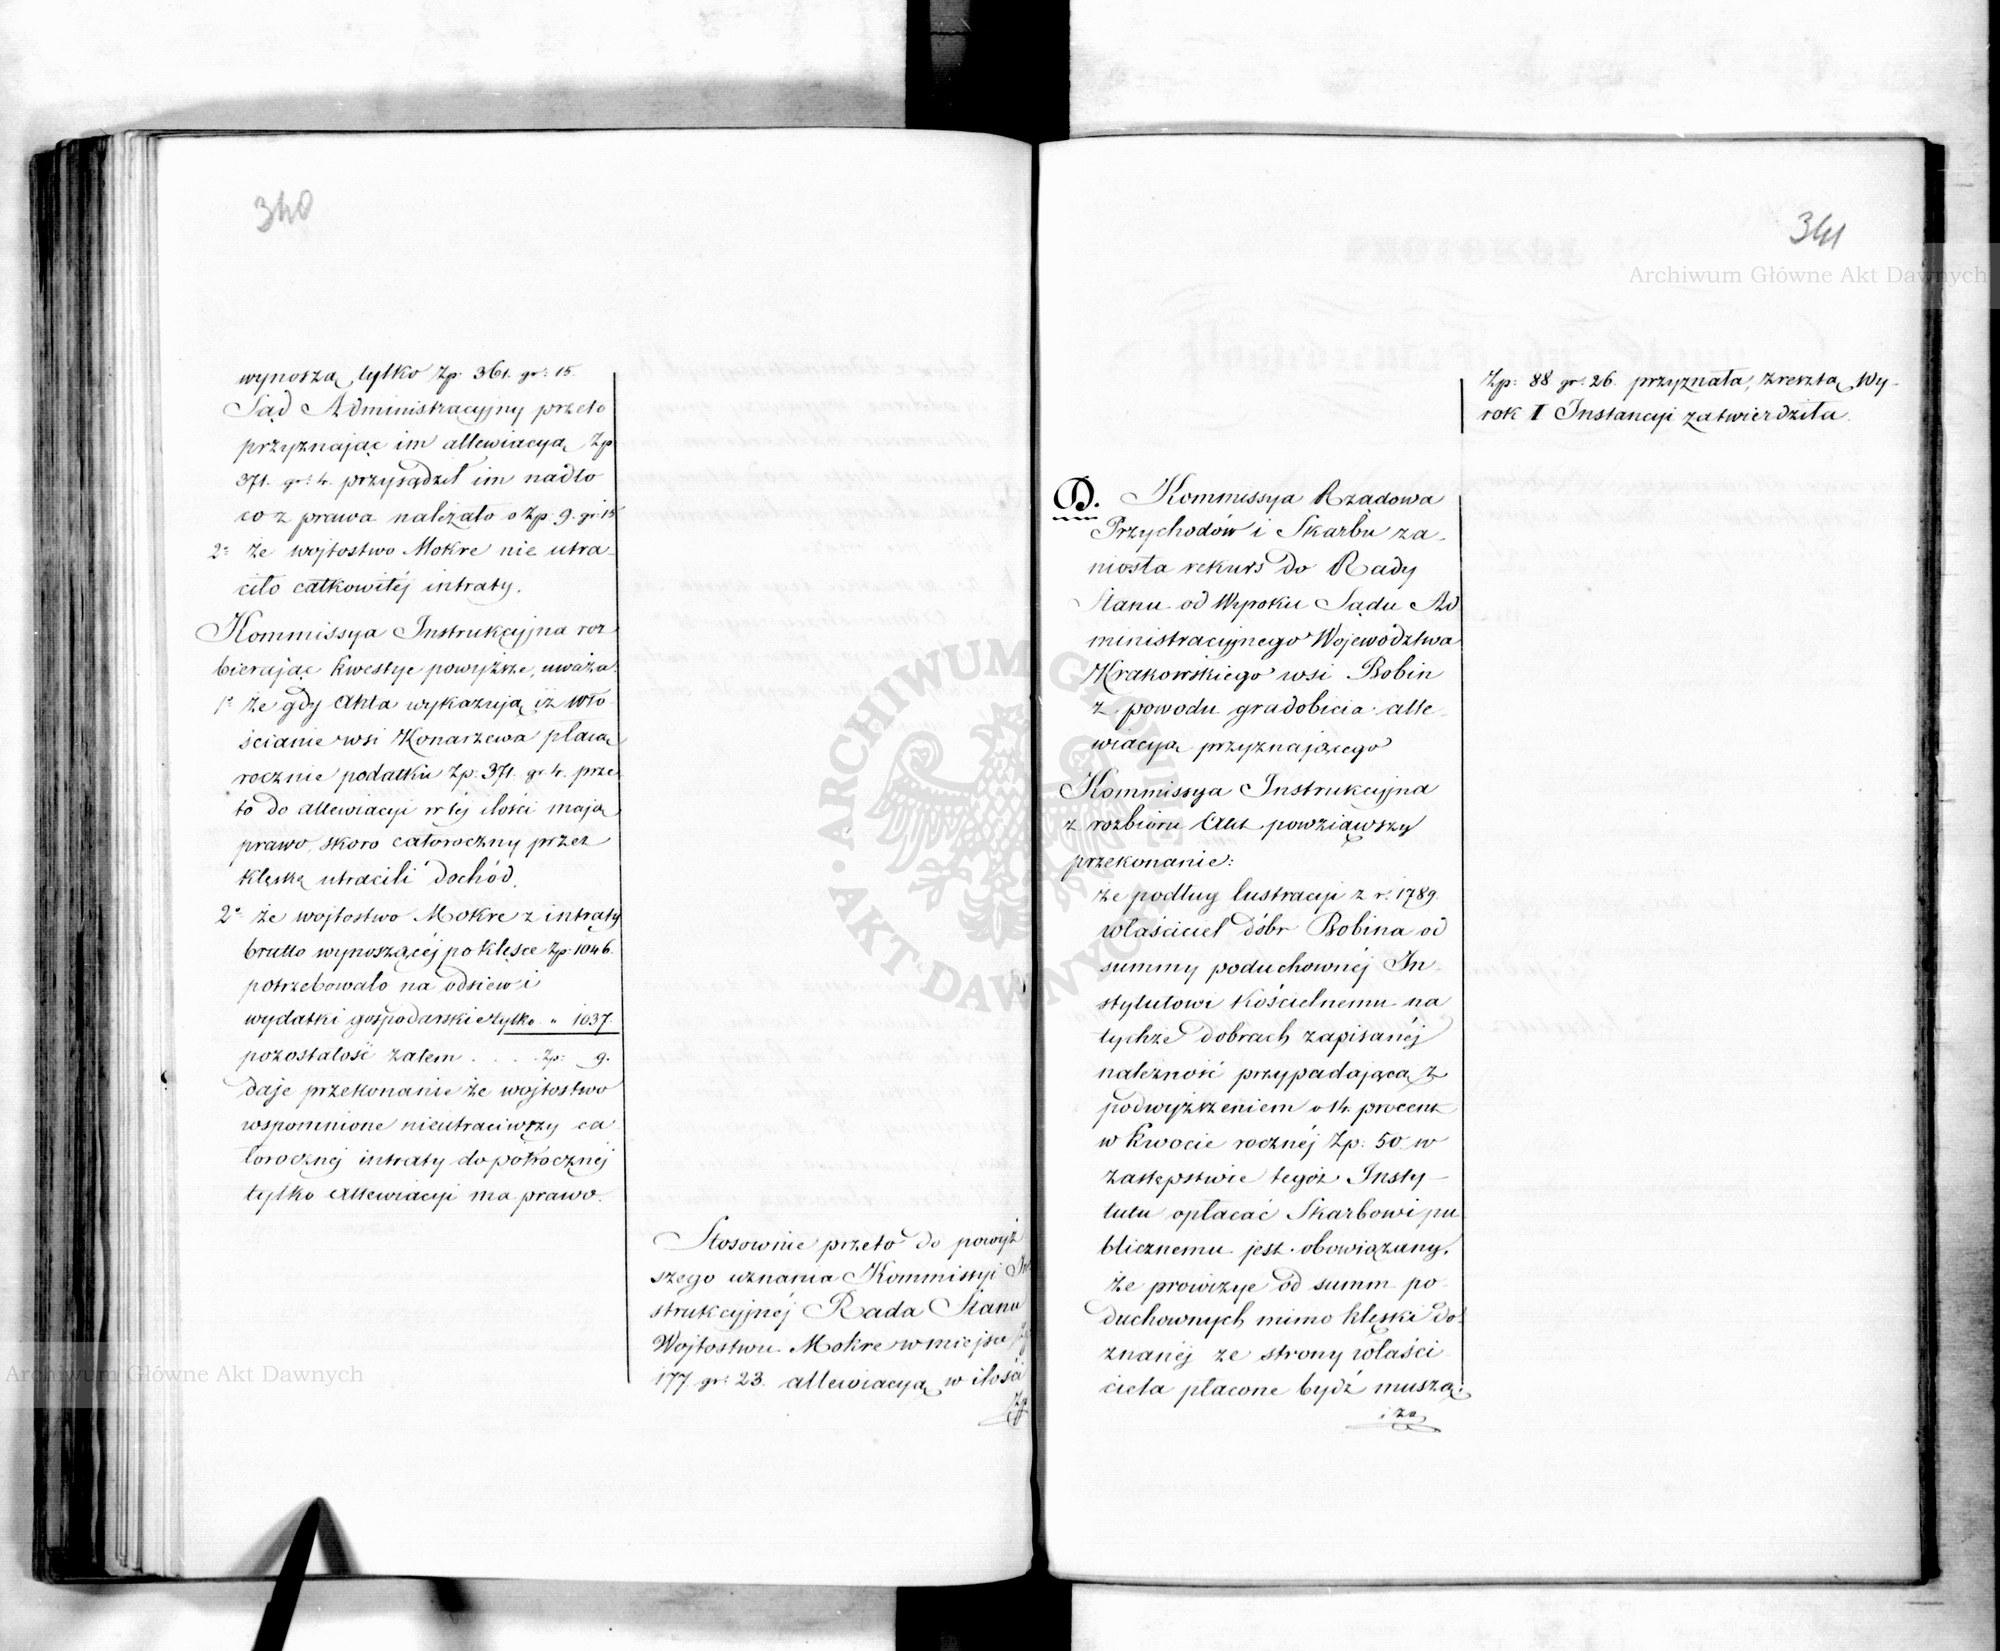 340
wynoszą tylko Zp. 361. gr: 15.
Sąd Administracyjny przeto
przyznając im allewiacyą Zp
371. gr: 4. przysądził im nadto
co z prawa należało o Zp. 9. gr: 15
2° że wojtostwo Mokre nie utra
ciło całkowitéj intraty.
Kommissya Instrukcyjna roz
bierając kwestye powyższe, uważa:
1° że gdy Akta wykazują iż Wło
ścianie wsi Konarzewa płacą
rocznie podatku Zp: 371. gr 4. prze
to do allewiacyi w téj ilości mają
prawo, skoro całoroczny przez
klęskę utracili dochód.
2° że wojtostwo Mokre z intraty
brutto wynoszącéj po klęsce Zp: 1046.
potrzebowało na odsiew i
wydatki gospodarskie tylko „ 1037.
pozostałość zatem . . . . Zp: 9.
daje przekonanie że wojtostwo
wspomnione nieutraciwszy ca
łorocznéj intraty do półrocznéj
tylko Allewiacyi ma prawo.
Stosownie przeto do powyż
szego uznania Kommissyi In
strukcyjnéj Rada Stanu
Wojtostwu Mokre w miejsce
177. gr: 23. allewiacyą w ilości
Zp
341
Zp: 88 gr: 26. przyznała, zresztą Wy-
rok I Instancyi zatwierdziła.
D. Kommissya Rządowa
Przychodów i Skarbu za-
niosła rekurs do Rady
Stanu od Wyroku Sądu Ad
ministracyjnego Województwa
Krakowskiego wsi Bobin
z powodu gradobicia alle-
wiacyą przyznającego
Kommissya Instrukcyjna
z rozbioru Akt powziąwszy
przekonanie:
że podług lustracyi z r. 1789.
właściciel dóbr Bobina od
summy poduchownéj In-
stytutowi kościelnemu na
tychże dobrach zapisanéj
należność przypadającą z
podwyższeniem o 14. procent
w kwocie rocznéj Zp: 50. w
zastępstwie tegoż Insty-
tutu opłacać Skarbowi pu
blicznemu jest obowiązany.
że prowizye od summ po-
duchownych mimo klęski do-
znanéj ze strony właści
ciela płacone bydź muszą;
i że
Archiwum Główne Akt Dawnych
Archiwum Główne Akt Dawnych
ARCHIWUM GŁÓWNE AKT DAWNYCH